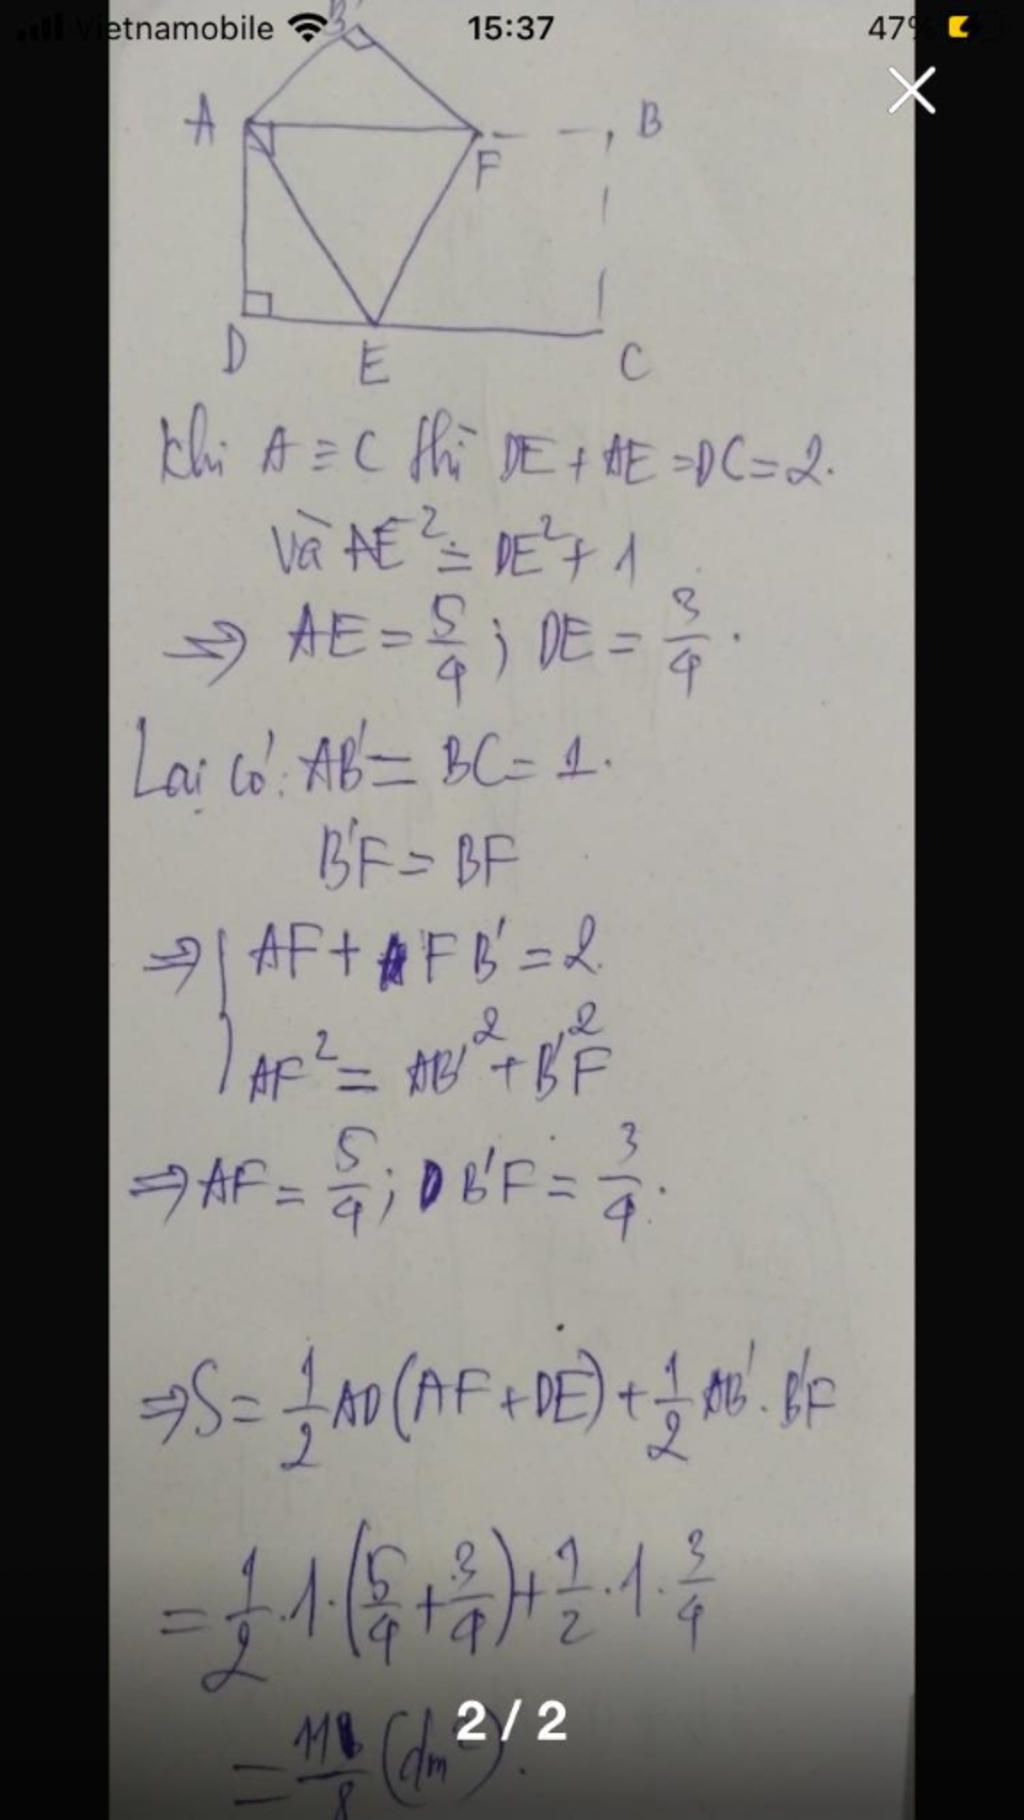 Vietnamobile 15:37 47%
B'
A B
F
D E C
Khi A ≡ C thì DE + AE = DC = 2.
Và AE² = DE² + 1
⇒ AE = 5/4 ; DE = 3/4.
Lại có: AB' = BC = 1.
B'F = BF
⇒ { AF + FB' = 2.
AF² = AB'² + B'F²
⇒ AF = 5/4 ; B'F = 3/4.
⇒ S = 1/2 AD (AF + DE) + 1/2 AB' . B'F
= 1/2 . 1 . (5/4 + 3/4) + 1/2 . 1 . 3/4
2 / 2
= 11/8 (dm²).